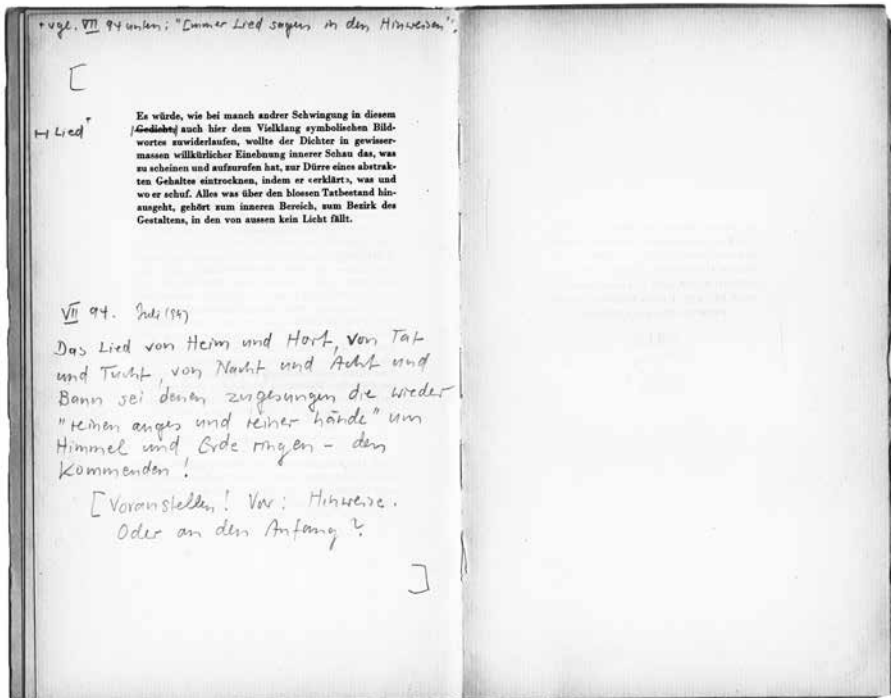 + vgl. VII 94 unten: "Immer Lied sagen in den Hinweisen".
[
Es würde, wie bei manch andrer Schwingung in diesem
⊢ Lied+ |Gedicht,| auch hier dem Vielklang symbolischen Bild-
wortes zuwiderlaufen, wollte der Dichter in gewisser-
massen willkürlicher Einebnung innerer Schau das, was
zu scheinen und aufzurufen hat, zur Dürre eines abstrak-
ten Gehaltes eintrocknen, indem er «erklärt», was und
wo er schuf. Alles was über den blossen Tatbestand hin-
ausgeht, gehört zum inneren Bereich, zum Bezirk des
Gestaltens, in den von aussen kein Licht fällt.
VII 94. Juli (94)
Das Lied von Heim und Hort, von Tat
und Tucht, von Nacht und Acht und
Bann sei denen zugesungen die wieder
"reinen auges und reiner hände" um
Himmel und Erde ringen – den
Kommenden!
[Voranstellen! Vor: Hinweise.
Oder an den Anfang?
]